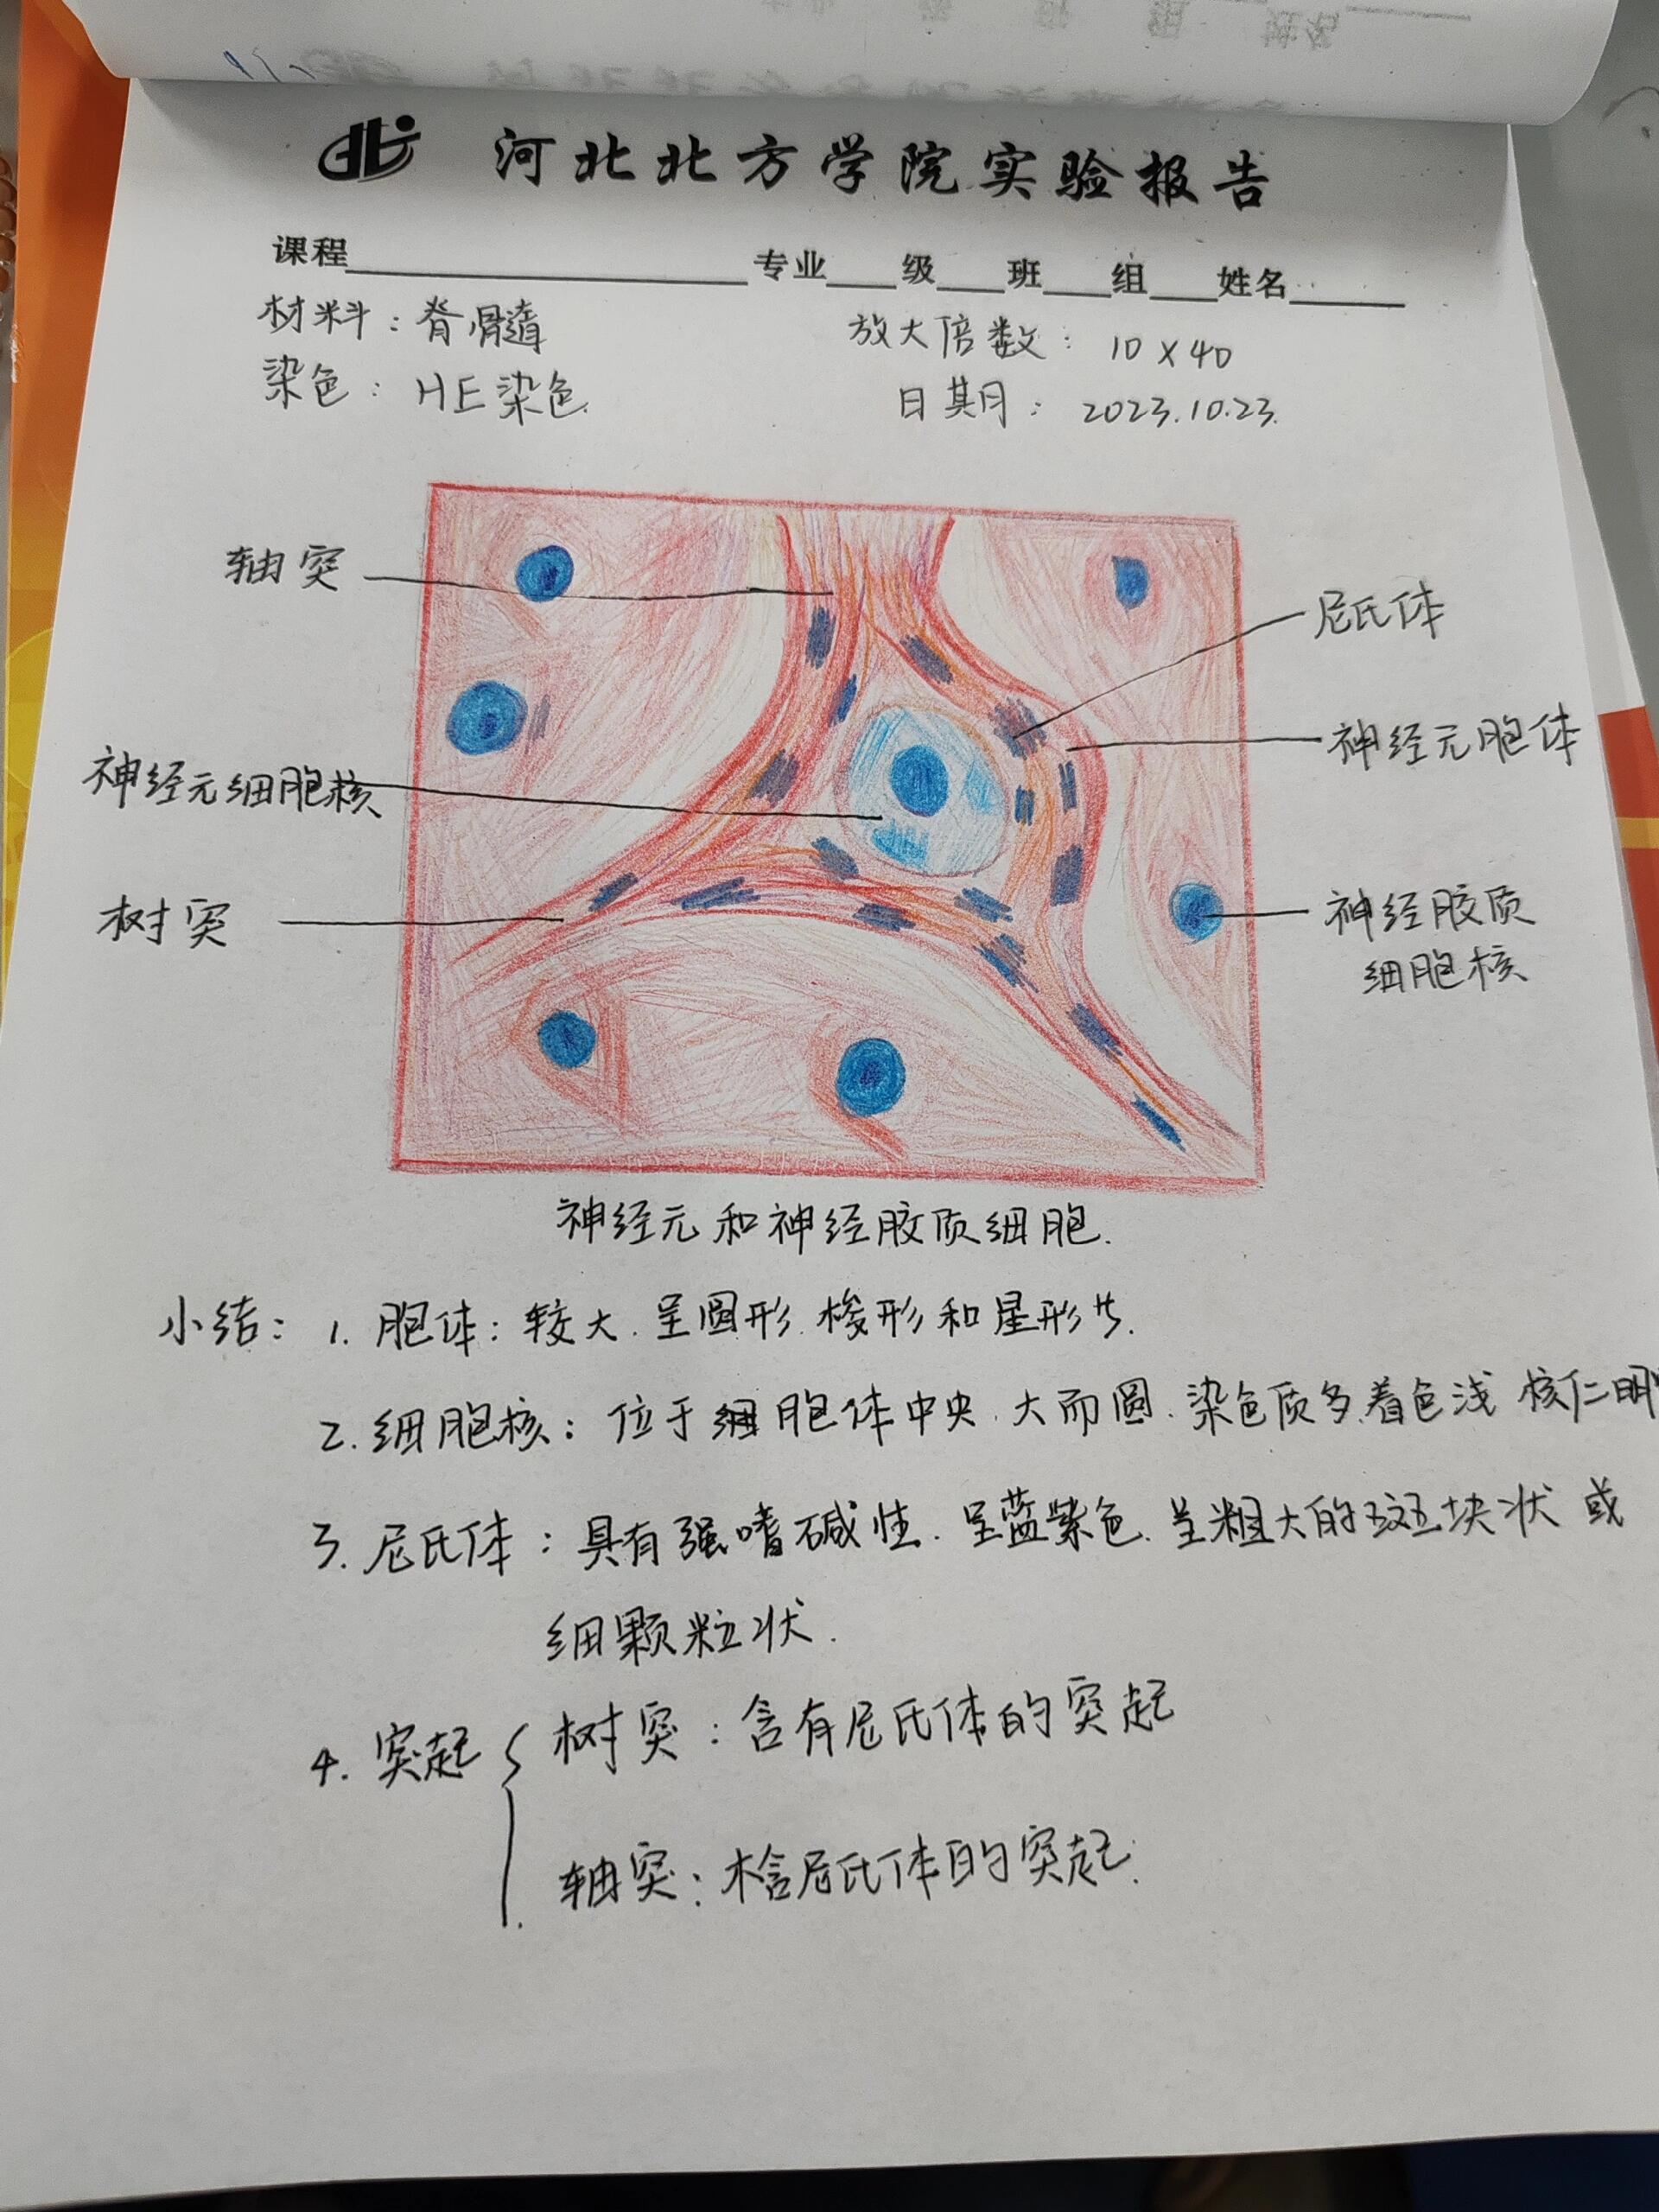 河北北方学院实验报告
课程 专业 级 班 组 姓名
材料：脊髓 放大倍数：10×40
染色：HE染色 日期：2023.10.23.
轴突
尼氏体
神经元胞体
神经元细胞核
树突
神经胶质
细胞核
神经元和神经胶质细胞.
小结：1. 胞体：较大.呈圆形.梭形和星形等.
2. 细胞核：位于细胞体中央.大而圆.染色质多.着色浅 核仁明
3. 尼氏体：具有强嗜碱性.呈蓝紫色.呈粗大的斑块状或
细颗粒状.
4. 突起 树突：含有尼氏体的突起
轴突：不含尼氏体的突起.